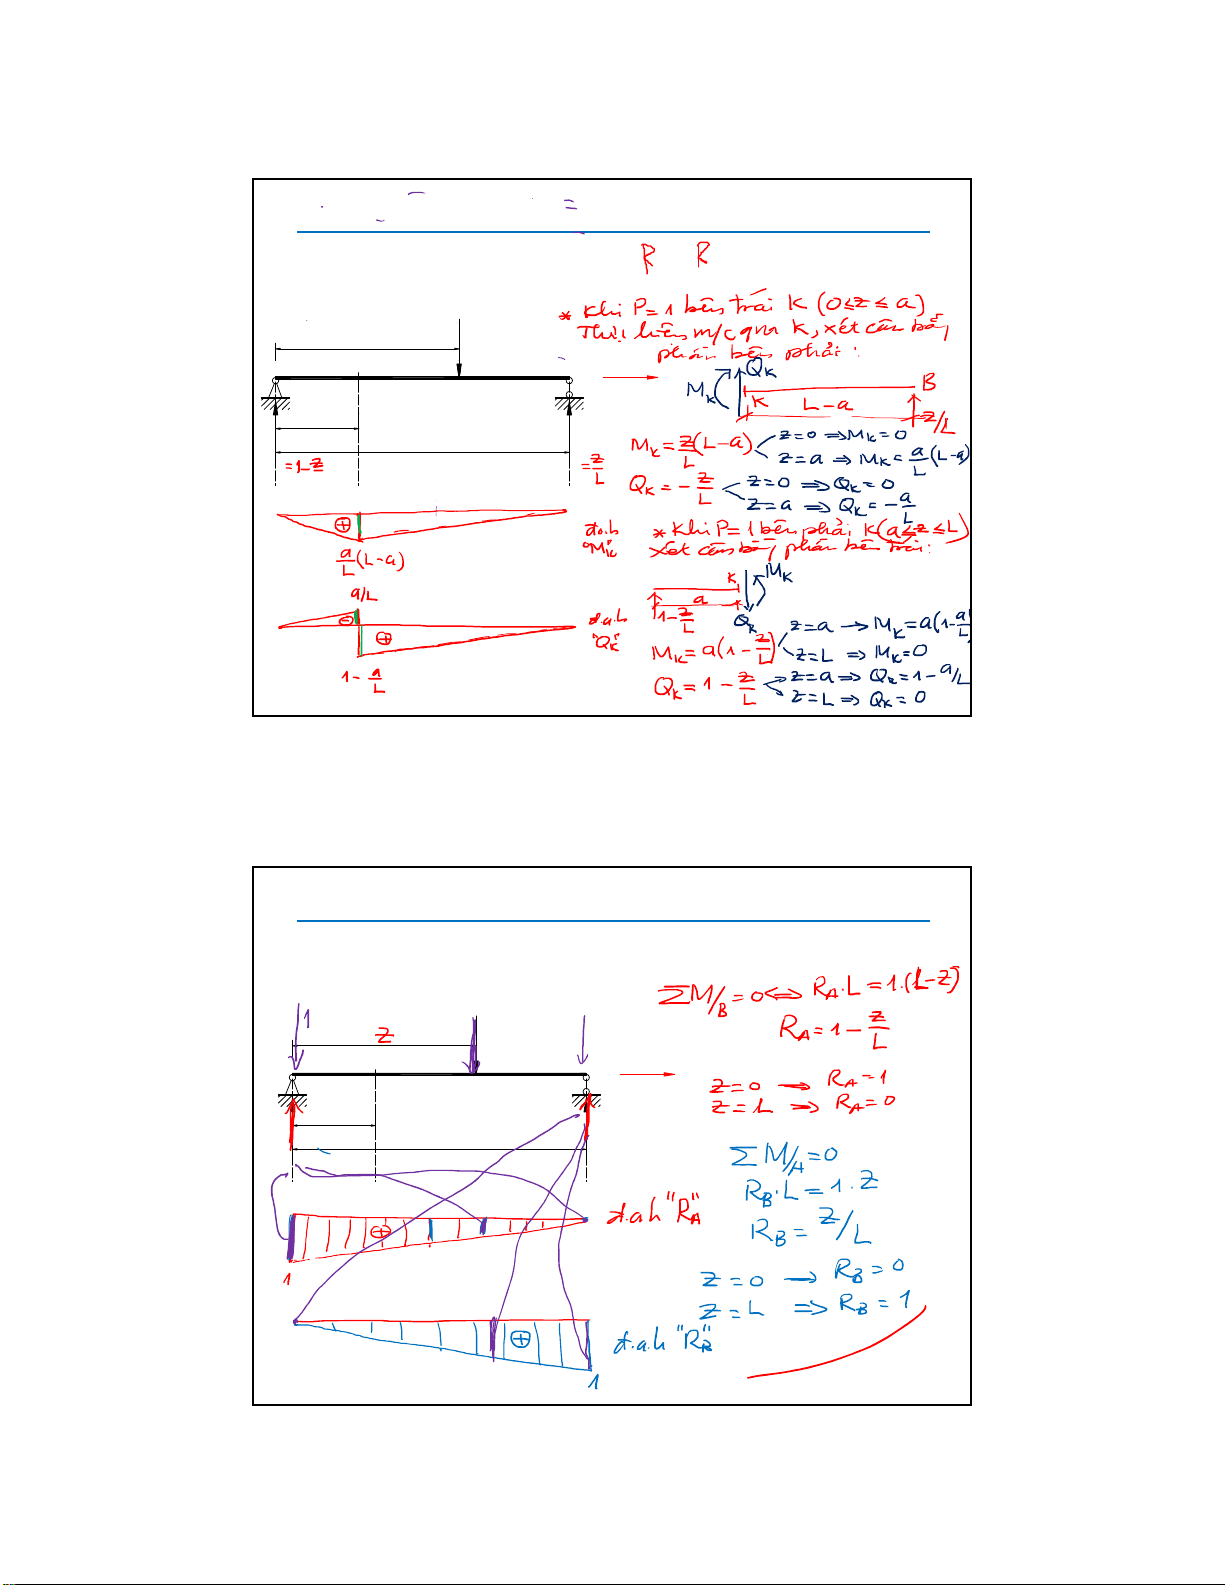 R R
* Khi P=1 bên trái K (0≤z≤a)
Thực hiện m/c qua K, xét cân bằng
phần bên phải:
M_K Q_K K L-a B z/L
=1-z/L
=z/L
M_K = z/L (L-a) z=0 ⇒ M_K=0
z=a ⇒ M_K = a/L (L-a)
Q_K = -z/L z=0 ⇒ Q_K=0
z=a ⇒ Q_K = -a/L
⊕
a/L (L-a)
đ.a.h
"M_K"
* Khi P=1 bên phải K (a≤z≤L)
Xét cân bằng phần bên trái:
K M_K
a
1-z/L Q_K
a/L
⊖ ⊕
1-a/L
đ.a.h
"Q_K"
M_K = a(1-z/L) z=a → M_K = a(1-a/L)
z=L ⇒ M_K=0
Q_K = 1-z/L z=a ⇒ Q_K=1-a/L
z=L ⇒ Q_K=0
1
Z
ΣM/B=0 ⇔ R_A.L=1.(L-z)
R_A=1-z/L
z=0 → R_A=1
z=L ⇒ R_A=0
ΣM/A=0
R_B.L=1.z
R_B=z/L
z=0 → R_B=0
z=L ⇒ R_B=1
⊕
1
đ.a.h "R_A"
⊕
1
đ.a.h "R_B"